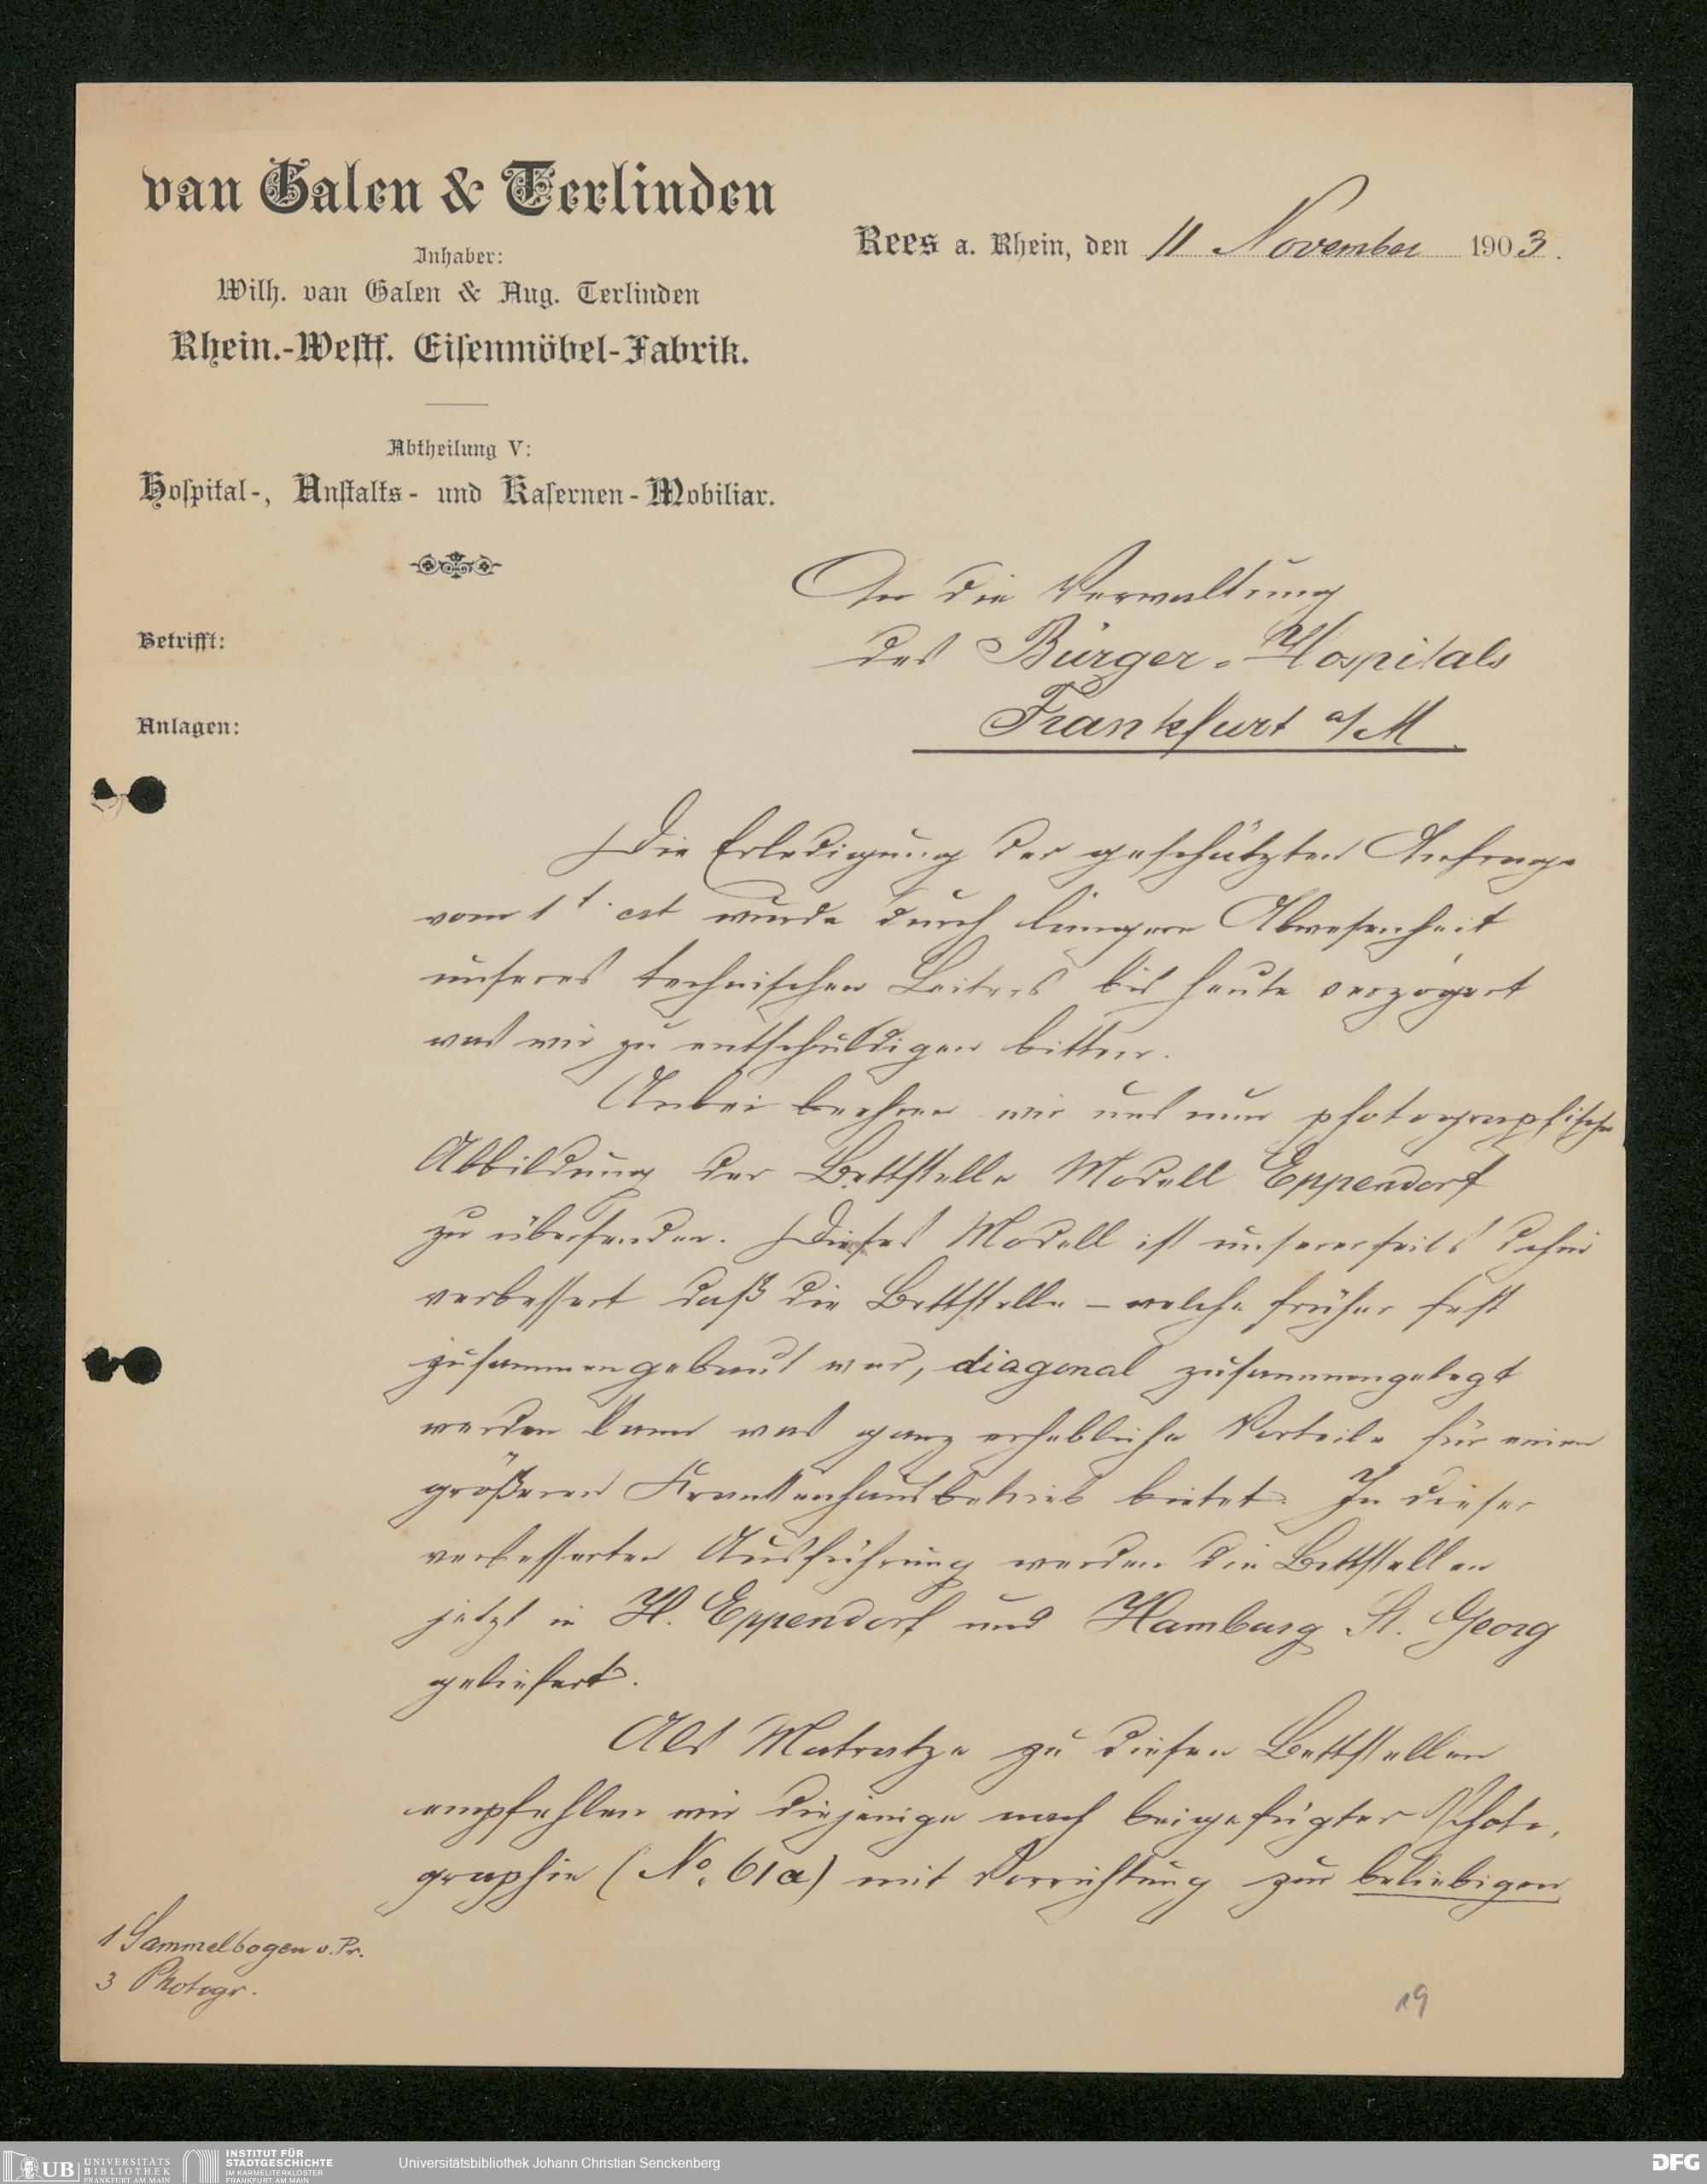 van Galen & Terlinden
Inhaber:
Wilh. van Galen & Aug. Terlinden
Rhein.-Westf. Eisenmöbel-Fabrik.
Abtheilung V:
Hospital-, Anstalts- und Kasernen-Mobiliar.
Rees a. Rhein, den 11 November 1903.
Betrifft:
Anlagen:
An die Verwaltung
des Bürger-Hospitals
Frankfurt a/M.
Die Erledigung der geschätzten Anfrage
vom 1t. crt wurde durch längere Abwesenheit
unseres technischen Leiters bis heute verzögert
was wir zu entschuldigen bitten.
Anbei beehren wir uns nun photographische
Abbildung der Bettstelle Modell Eppendorf
zu übersenden. Dieses Modell ist unsererseits dahin
verbessert daß die Bettstelle – welche früher fest
zusammengebaut war, diagonal zusammengelegt
werden kann was ganz erhebliche Vorteile für einen
größeren Krankenhausbetrieb bietet. In dieser
verbesserten Ausführung werden die Bettstellen
jetzt in H. Eppendorf und Hamburg St. Georg
geliefert.
Als Matratze zu diesen Bettstellen
empfehlen wir diejenige nach beigefügter Photo-
graphie (No. 61a) mit Vorrichtung zur beliebigen
1 Sammelbogen v. Pr.
3 Photogr.
19
UB UNIVERSITÄTS
BIBLIOTHEK
FRANKFURT AM MAIN
INSTITUT FÜR
STADTGESCHICHTE
IM KARMELITERKLOSTER
FRANKFURT AM MAIN
Universitätsbibliothek Johann Christian Senckenberg
DFG